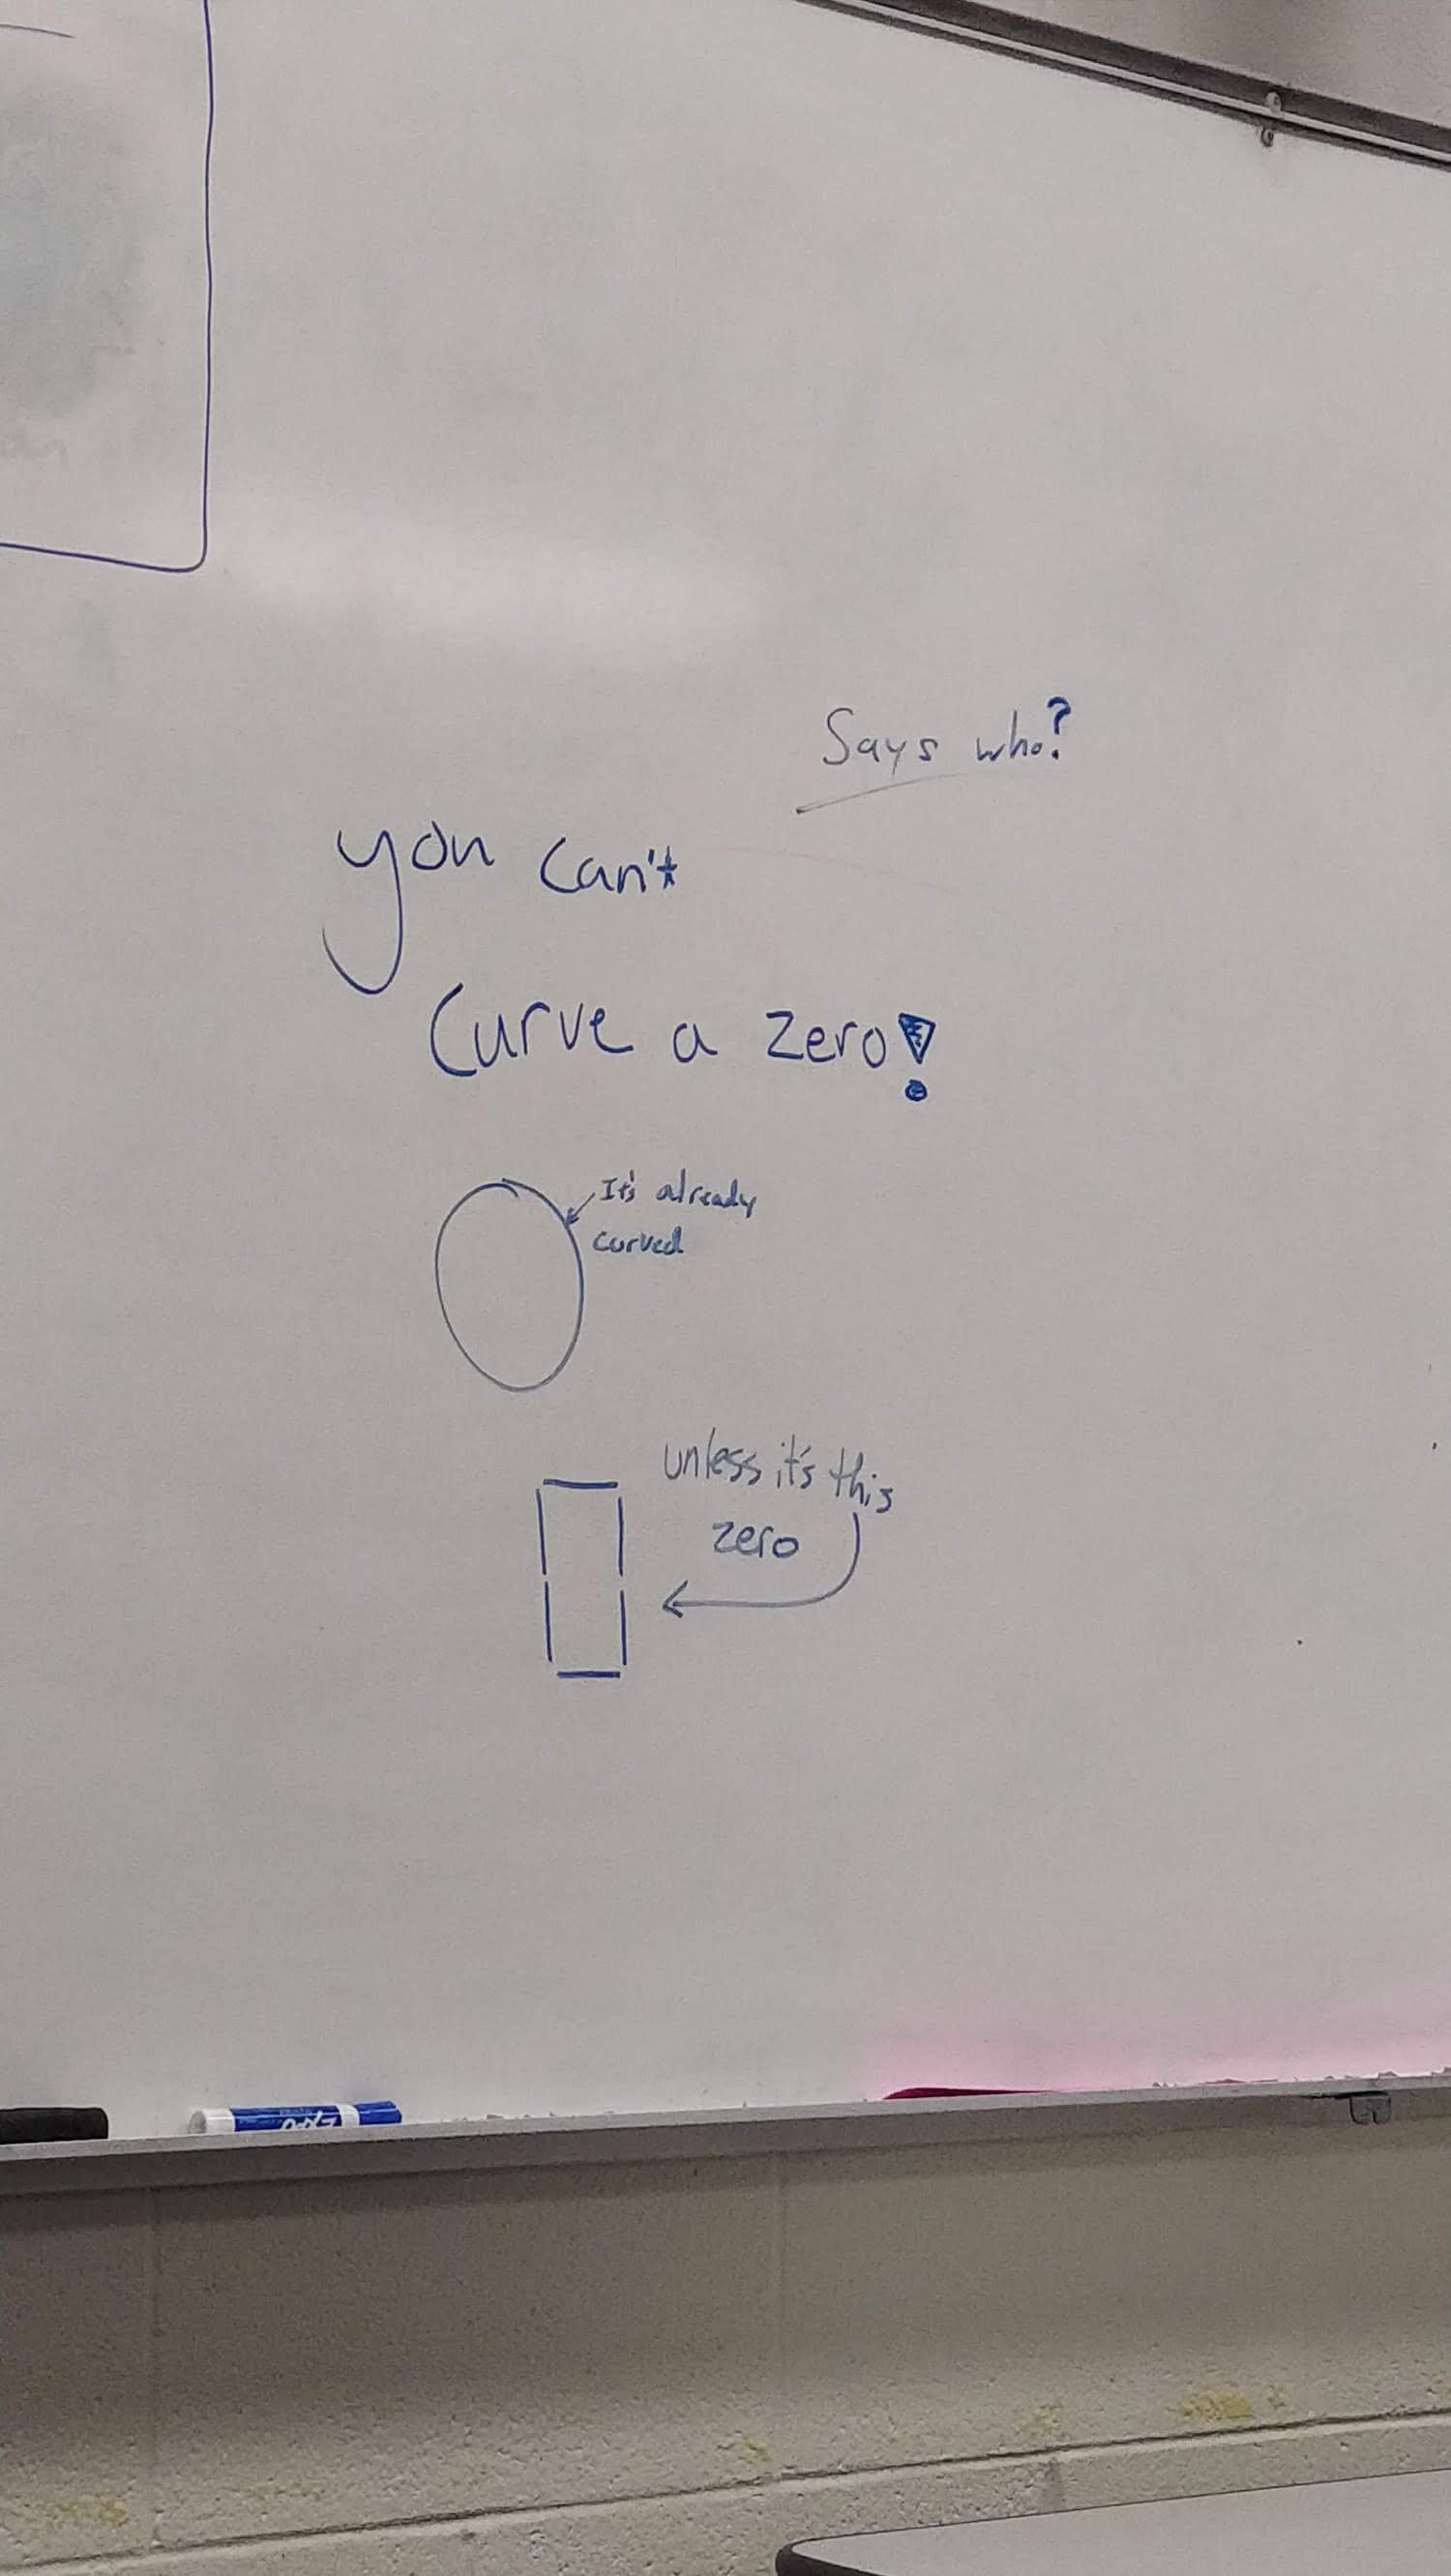 Says who?
you can't
Curve a zero!
It's already
curved
unless it's this
zero
EXPO